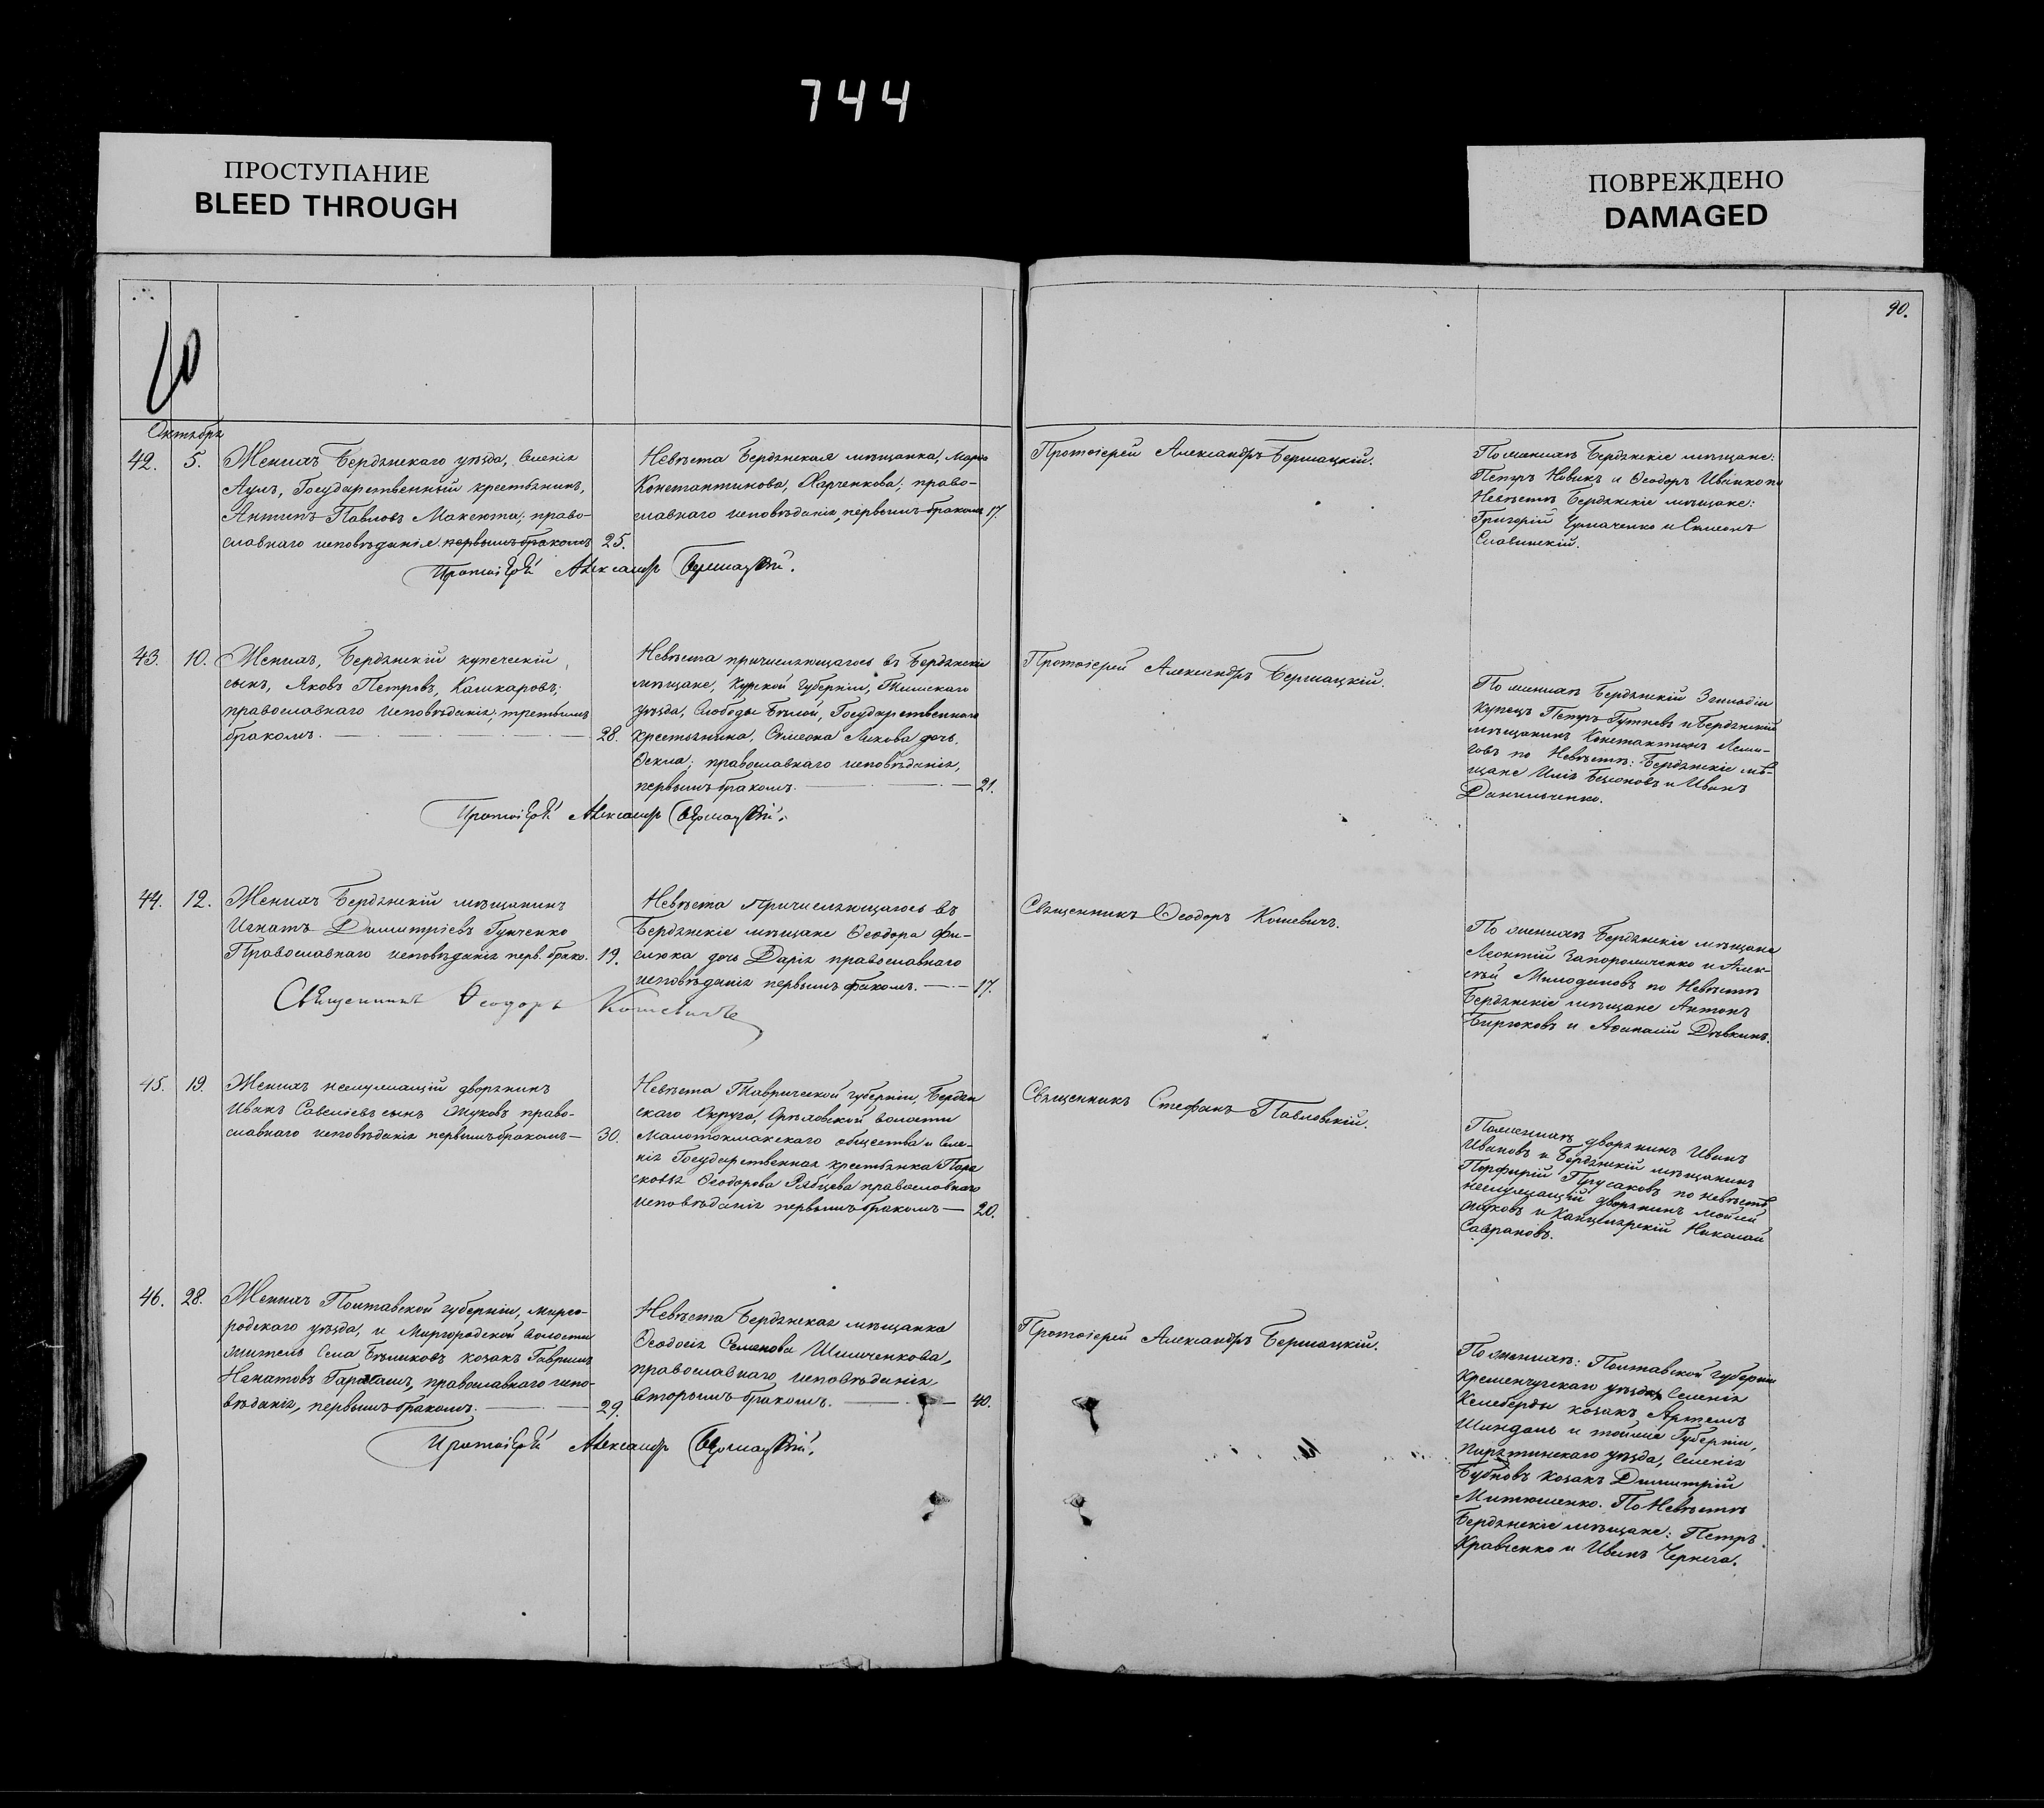 744
ПРОСТУПАНИЕ
BLEED THROUGH
ПОВРЕЖДЕНО
DAMAGED
90.
10
Октября
42. 5. Женихъ Бердянскаго уѣзда, Селенія
Аулъ, Государственный крестьянинъ,
Антипъ Павловъ Макеюта; право-
славнаго исповѣданія первымъ бракомъ 25.
Невѣста Бердянская мѣщанка, Марѳа
Константинова, Харченкова; право-
славнаго исповѣданія, первымъ бракомъ 17.
Протоіерей Александръ Бермацкій.
Протоіерей Александръ Бермацкій.
По женихѣ Бердянскіе мѣщане:
Петръ Новикъ и Ѳеодоръ Иванко по
Невѣстѣ Бердянскіе мѣщане:
Григорій Чумаченко и Симеонъ
Славинскій.
43. 10. Женихъ, Бердянскій купеческій
сынъ, Яковъ Петровъ, Кашкаровъ;
православнаго исповѣданія; третьимъ
бракомъ. 28.
Невѣста причисляющагося въ Бердянскіе
мѣщане, Курской Губерніи, Тимскаго
уѣзда, Слободы Бѣлой, Государственнаго
крестьянина, Симеона Ликова дочь,
Ѳекла; православнаго исповѣданія,
первымъ бракомъ. 21.
Протоіерей Александръ Бермацкій.
Протоіерей Александръ Бермацкій.
По женихѣ Бердянскій 3 гильдіи
купецъ Петръ Гутневъ и Бердянскій
мѣщанинъ Константинъ
по Невѣстѣ: Бердянскіе мѣ-
щане Илія и Иванъ
Данильченко.
44. 12. Женихъ Бердянскій мѣщанинъ
Игнатъ Димитріевъ Гунченко
Православнаго исповѣданія перв. брако. 19.
Невѣста причисляющагося въ
Бердянскіе мѣщане Ѳеодора Фи-
слюка дочь Дарія православнаго
исповѣданія первымъ бракомъ. 17.
Священникъ Ѳеодоръ Кошевичъ
Священникъ Ѳеодоръ Кошевичъ.
По женихѣ Бердянскіе мѣщане
Леонтій Запорожченко и Алек-
сѣй Милодановъ по Невѣстѣ
Бердянскіе мѣщане Антонъ
Бирюковъ и Аѳанасій Дѣвкинъ.
45. 19. Женихъ неслужащій дворянинъ
Иванъ Савеліевъ сынъ Жуковъ право-
славнаго исповѣданія первымъ бракомъ 30.
Невѣста Таврической губерніи, Бердян
скаго Округа, Орѣховской волости
Малотокмакскаго общества и Селе-
нія Государственная крестьянка Пара
сковья Ѳеодорова Рябцева православнаго
исповѣданія первымъ бракомъ 20.
Священникъ Стефанъ Павловскій.
По женихѣ дворянинъ Иванъ
Ивановъ и Бердянскій мѣщанинъ
Порфирій Прусаковъ по невѣстѣ
неслужащій дворянинъ Мойсей
Жуковъ и Канцелярскій Николай
Сафрановъ.
46. 28. Женихъ Полтавской губерніи, Мирго-
родскаго уѣзда, и Миргородской волости
житель Села Бѣликовъ козакъ Гавріилъ
Игнатовъ Гарагашъ, православнаго испо-
вѣданія, первымъ бракомъ. 29.
Невѣста Бердянская мѣщанка
Ѳеодосія Семенова Шимченкова,
православнаго исповѣданія
вторымъ бракомъ. 40.
Протоіерей Александръ Бермацкій.
Протоіерей Александръ Бермацкій.
По женихѣ: Полтавской губерніи
Кременчугскаго уѣзда Селенія
Келеберды козакъ Артемъ
Шиндаль и тойже Губерніи,
Пирятинскаго уѣзда, Селенія
Бубновъ козакъ Димитрій
Митюшенко. По Невѣстѣ
Бердянскіе мѣщане: Петръ
Кравченко и Иванъ Чернега.